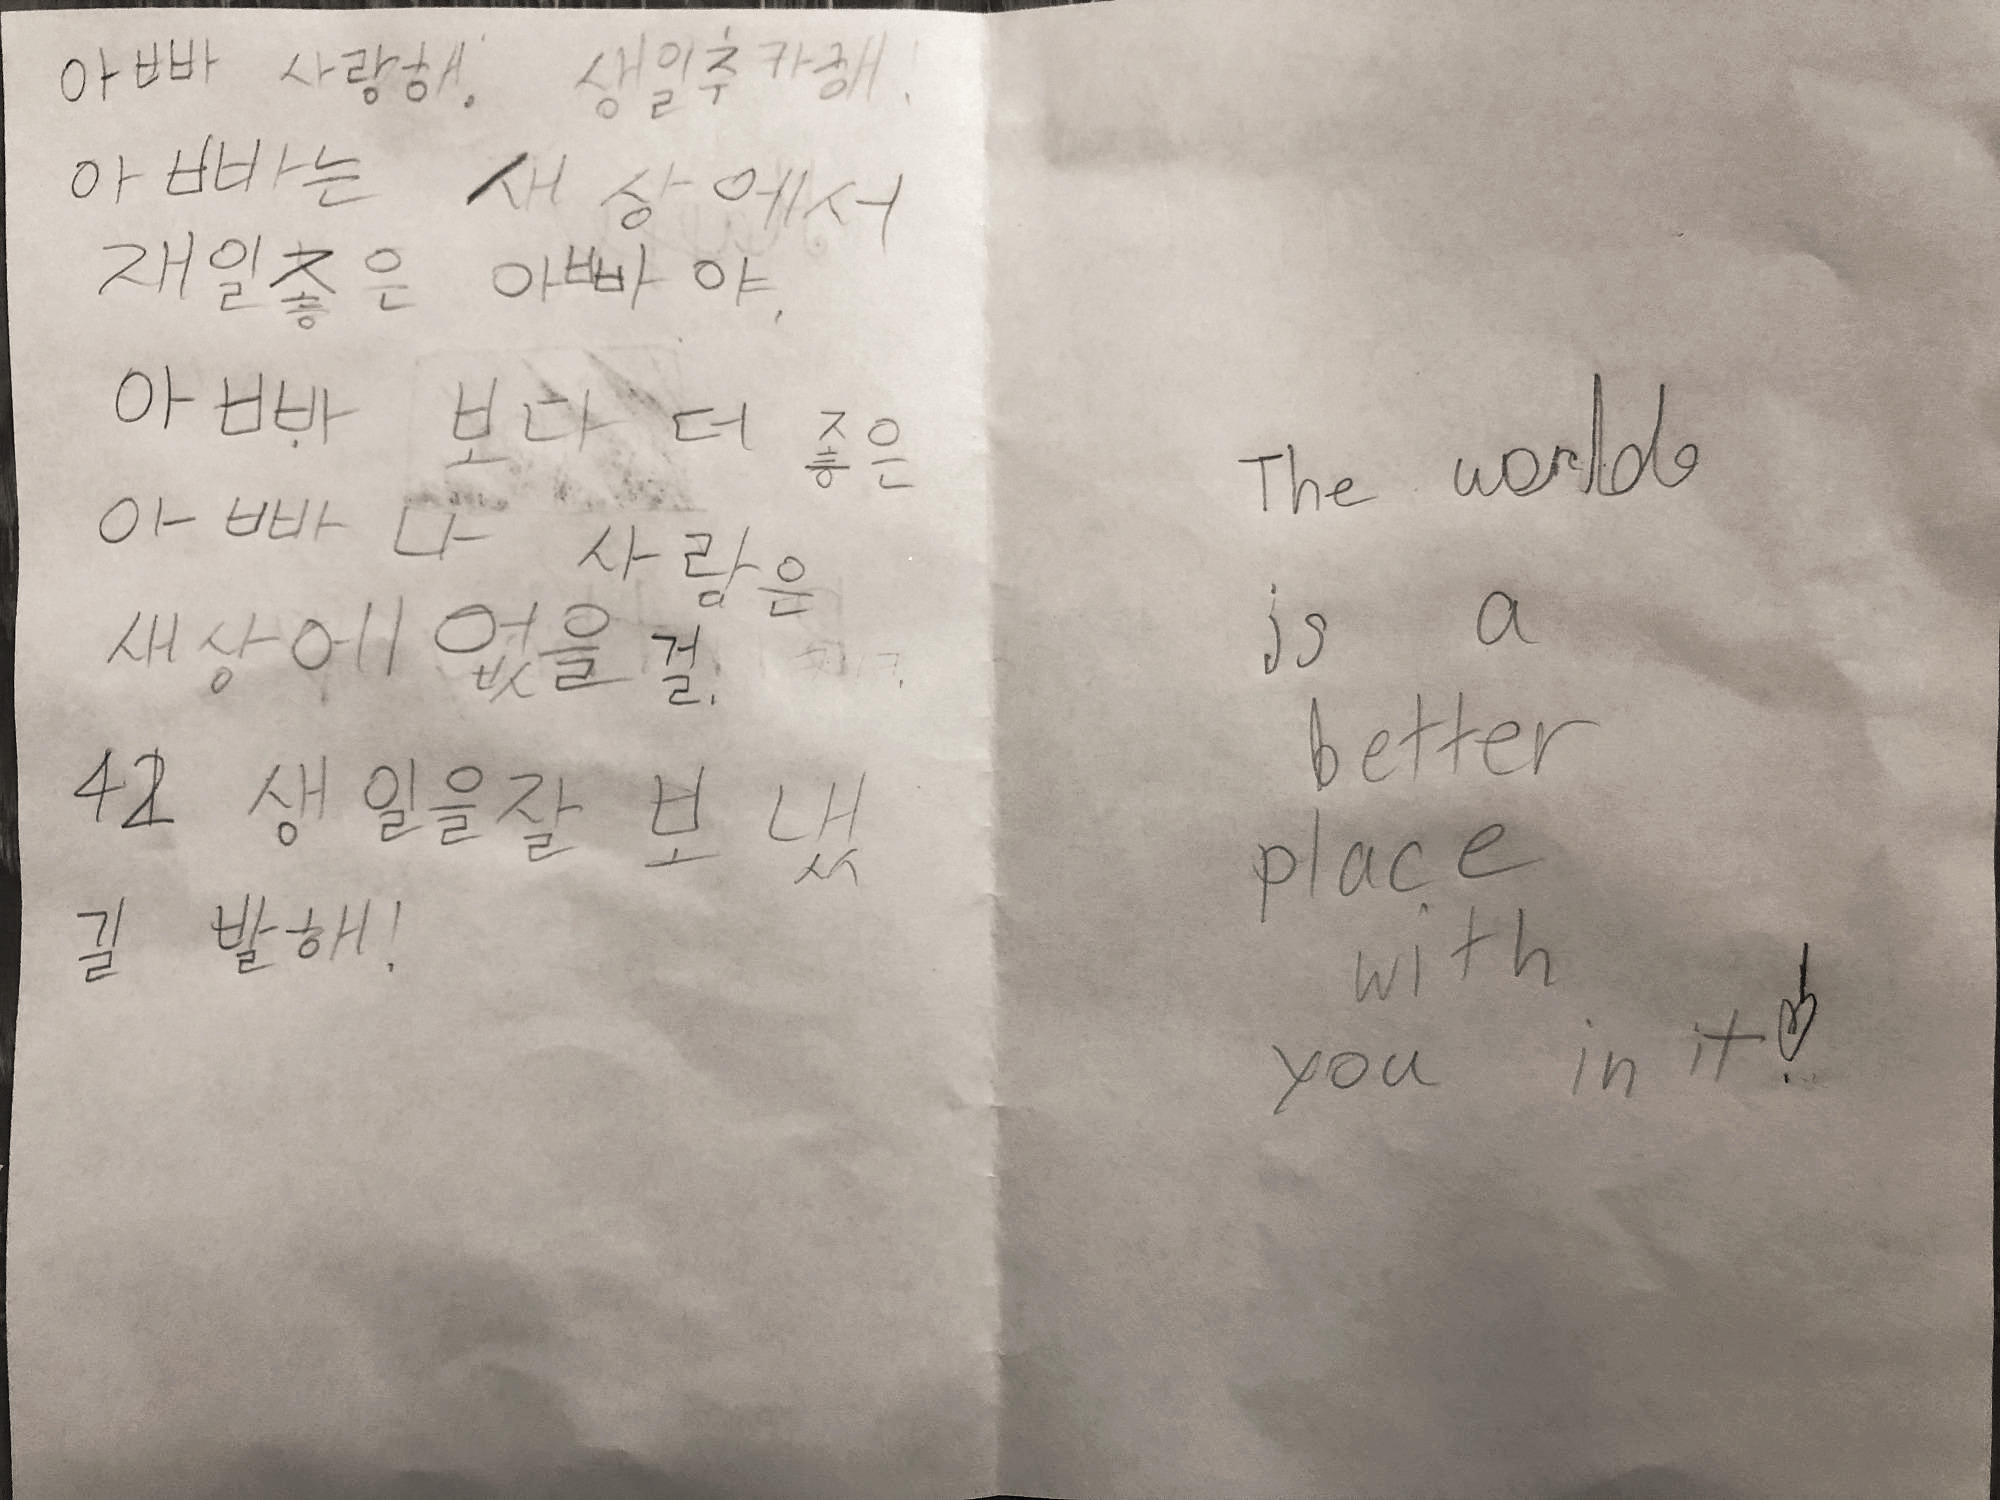 아빠 사랑해! 생일추카해!
아빠는 새상에서
재일좋은 아빠야.
아빠 보다 더 좋은
아빠 다 사람은
새상에 없을 걸!
42 생일을잘 보냈
길 발해!
The world
is a
better
place
with
you in it!